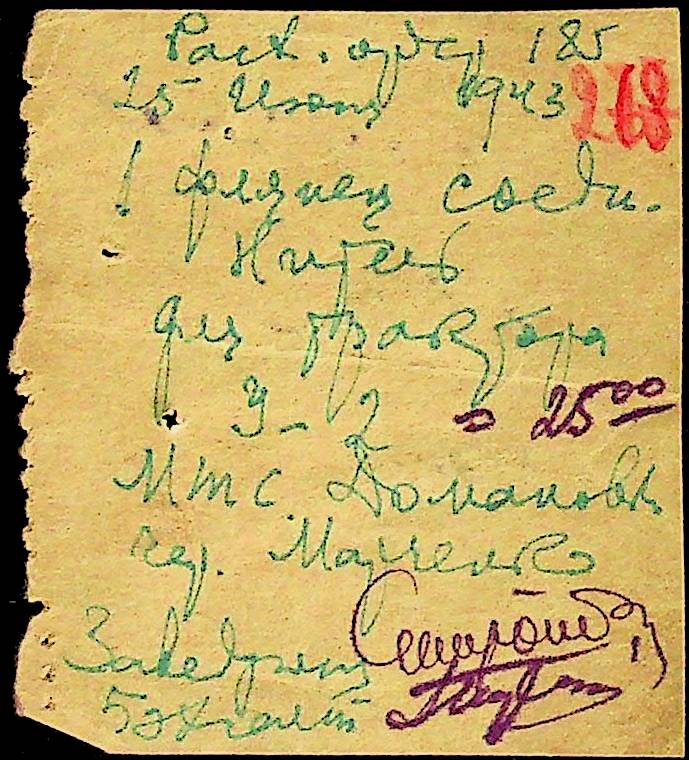 Расх. ордер 185
25 Июня 1943 268
1 флянец соеди.
нитель
для трактора
У-2 = 25 00
МТС Домановк
чер. Марченко
Заведующ